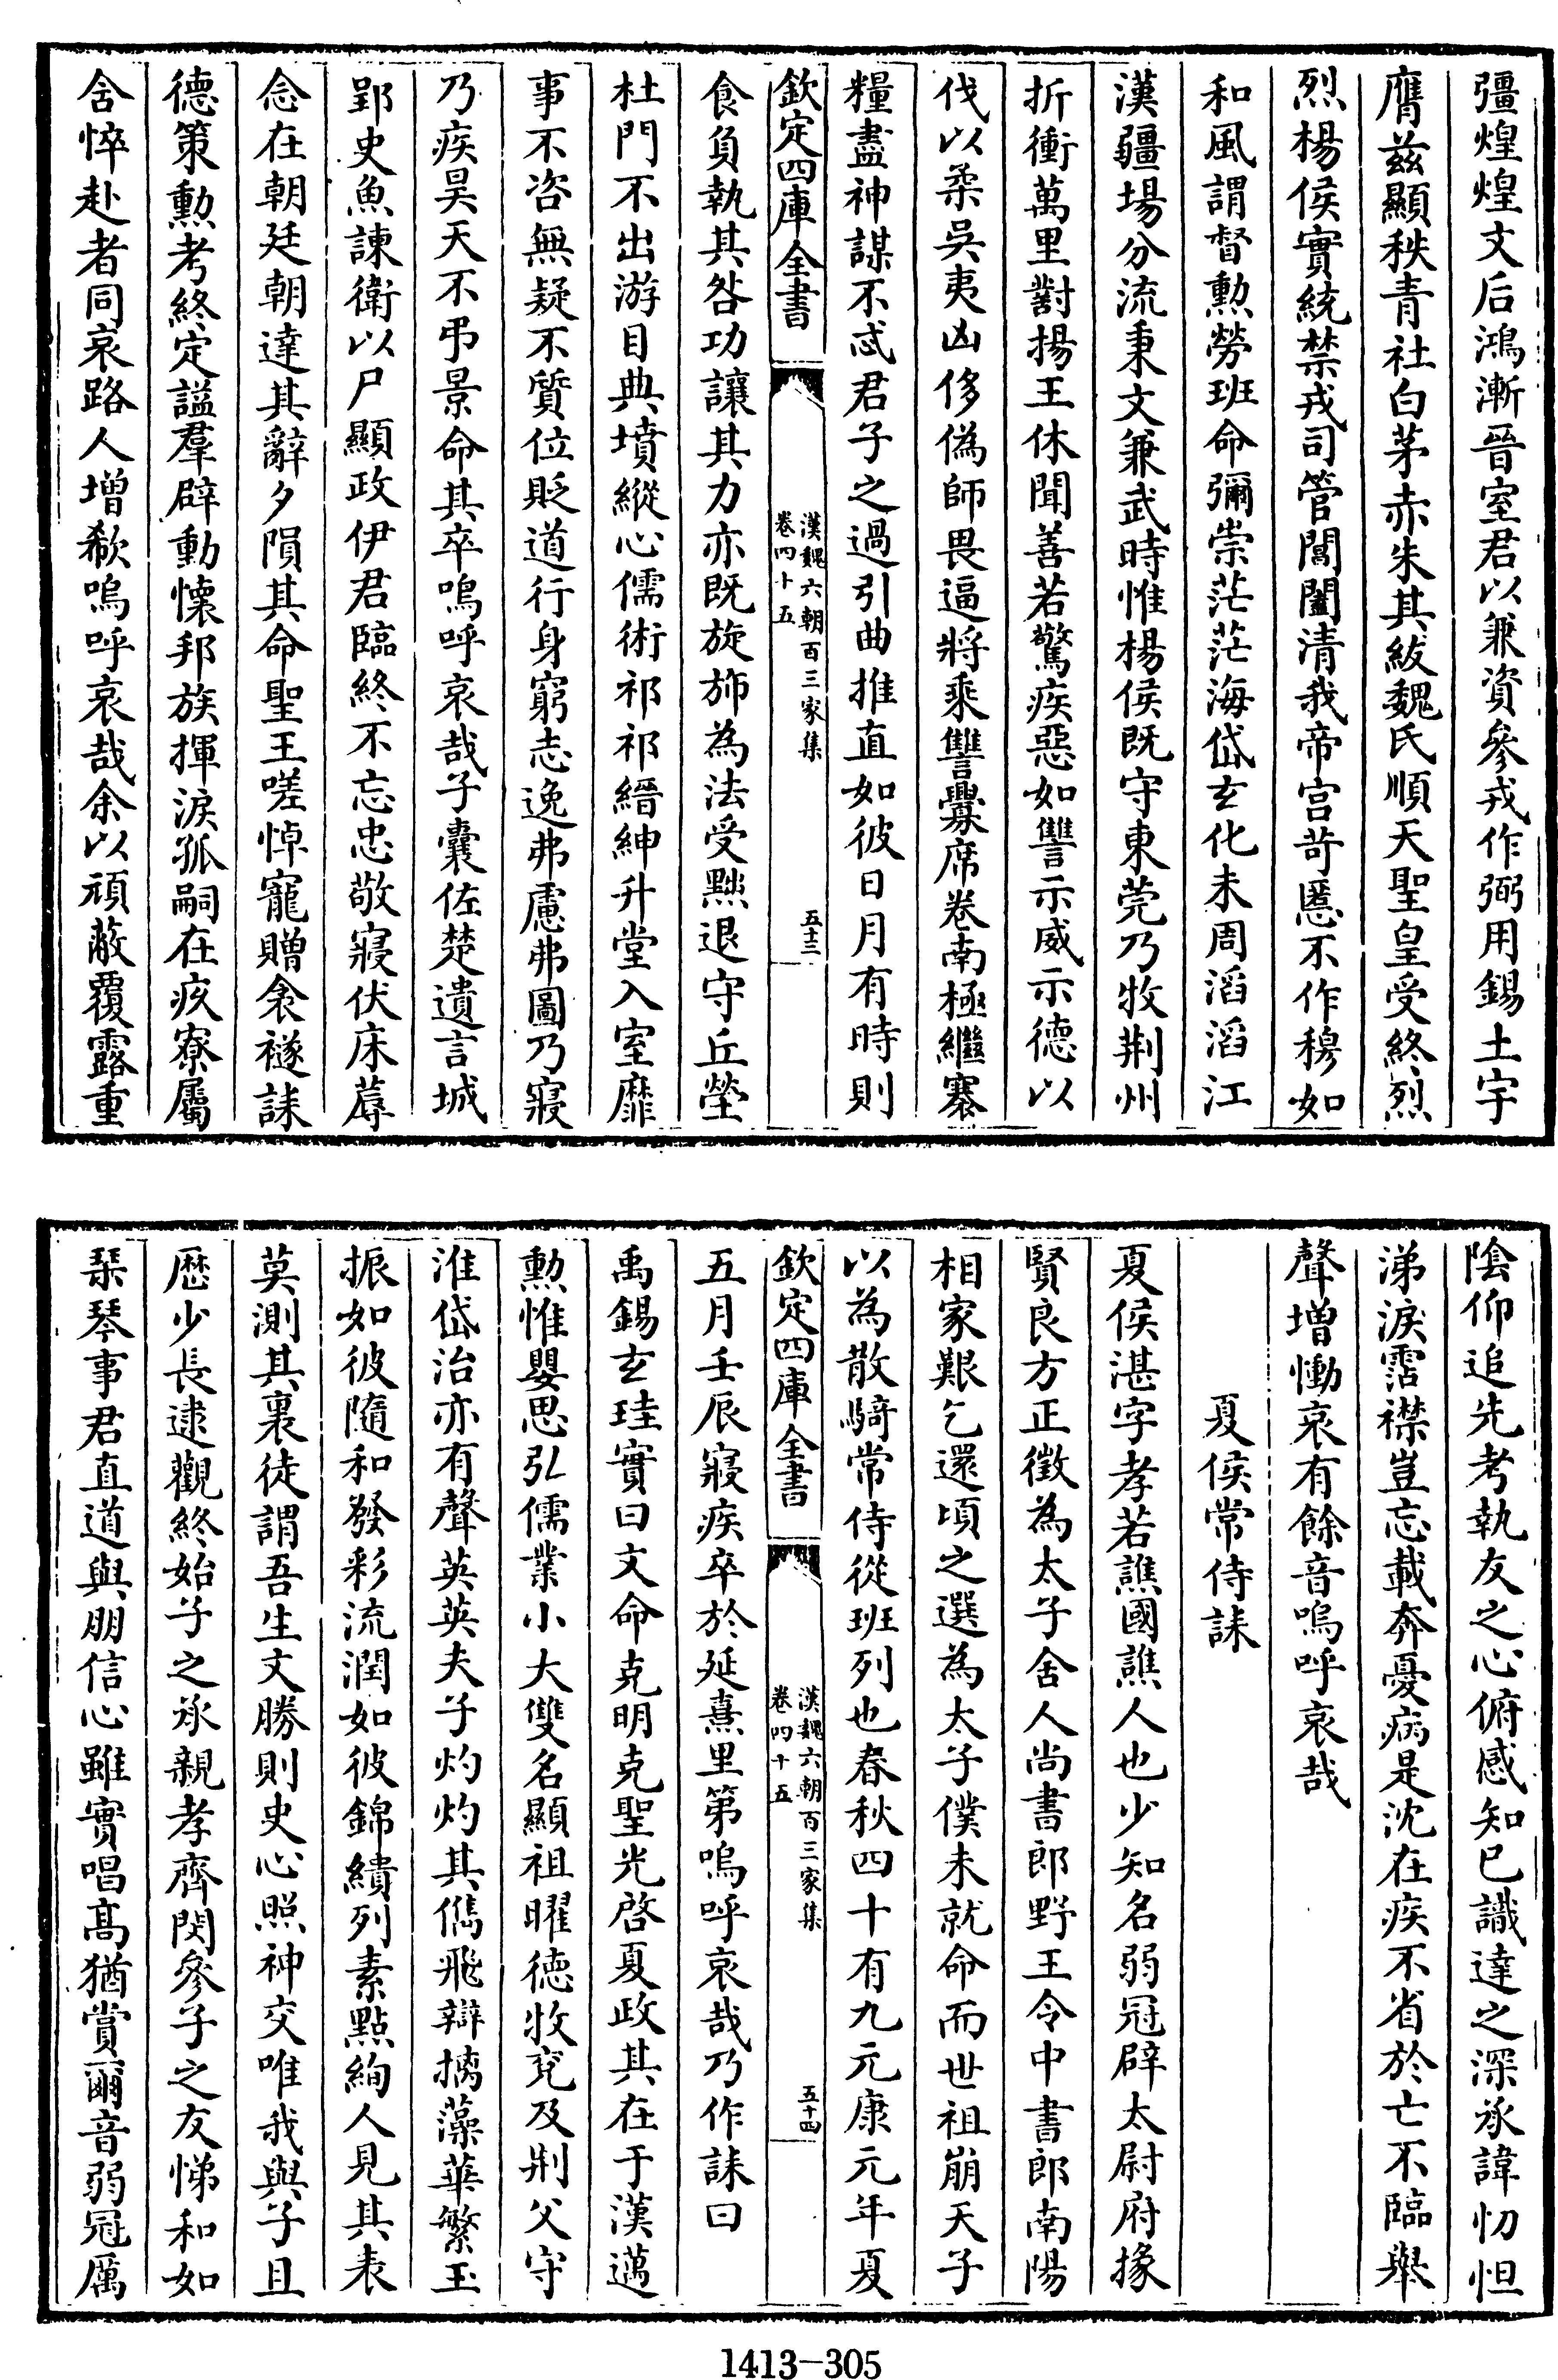 彊煌煌文后鴻漸晉室君以兼資參戎作弼用錫土宇
膺茲顯秩青社白茅赤朱其紱魏氏順天聖皇受終烈
烈楊侯實統禁戎司管閶闔清我帝宮苛慝不作穆如
和風謂督勲勞班命彌崇茫茫海岱玄化未周滔滔江
漢疆場分流秉文兼武時惟楊侯既守東莞乃牧荆州
折衝萬里對揚王休聞善若驚疾惡如讐示威示德以
伐以柔吳夷凶侈偽師畏逼將乘讐釁席卷南極繼褰
糧盡神謀不忒君子之過引曲推直如彼日月有時則
欽定四庫全書
漢魏六朝百三家集
卷四十五
五十三
食負執其咎功讓其力亦既旋斾為法受黜退守丘塋
杜門不出游目典墳縱心儒術祁祁縉紳升堂入室靡
事不咨無疑不質位貶道行身窮志逸弗慮弗圖乃寢
乃疾昊天不弔景命其卒嗚呼哀哉子囊佐楚遺言城
郢史魚諫衛以尸顯政伊君臨終不忘忠敬寢伏床蓐
念在朝廷朝達其辭夕隕其命聖王嗟悼寵贈衾襚誄
德策勲考終定諡羣辟動懷邦族揮淚孤嗣在疚寮屬
含悴赴者同哀路人增欷嗚呼哀哉余以頑蔽覆露重
陰仰追先考執友之心俯感知已識達之深承諱忉怛
涕淚霑襟豈忘載奔憂病是沈在疾不省於亡不臨舉
聲增慟哀有餘音嗚呼哀哉
夏侯常侍誄
夏侯湛字孝若譙國譙人也少知名弱冠辟太尉府掾
賢良方正徵為太子舍人尚書郎野王令中書郎南陽
相家艱乞還頃之選為太子僕未就命而世祖崩天子
以為散騎常侍從班列也春秋四十有九元康元年夏
欽定四庫全書
漢魏六朝百三家集
卷四十五
五十四
五月壬辰寢疾卒於延熹里第嗚呼哀哉乃作誄曰
禹錫玄珪實曰文命克明克聖光啓夏政其在于漢邁
勲惟嬰思弘儒業小大雙名顯祖曜德牧兖及荆父守
淮岱治亦有聲英英夫子灼灼其儁飛辯摛藻華繁玉
振如彼隨和發彩流潤如彼錦繢列素點絢人見其表
莫測其裏徒謂吾生文勝則史心照神交唯我與子且
歴少長逮觀終始子之承親孝齊閔參子之友悌和如
琹琴事君直道與朋信心雖實唱高猶賞爾音弱冠厲
1413—305